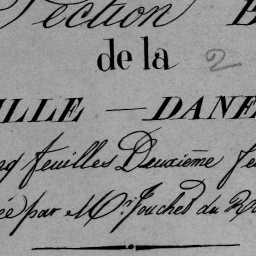 Section B
de la 2
ILLE — DANE
feuilles Deuxième fe
ée par Mr. Jouched du R